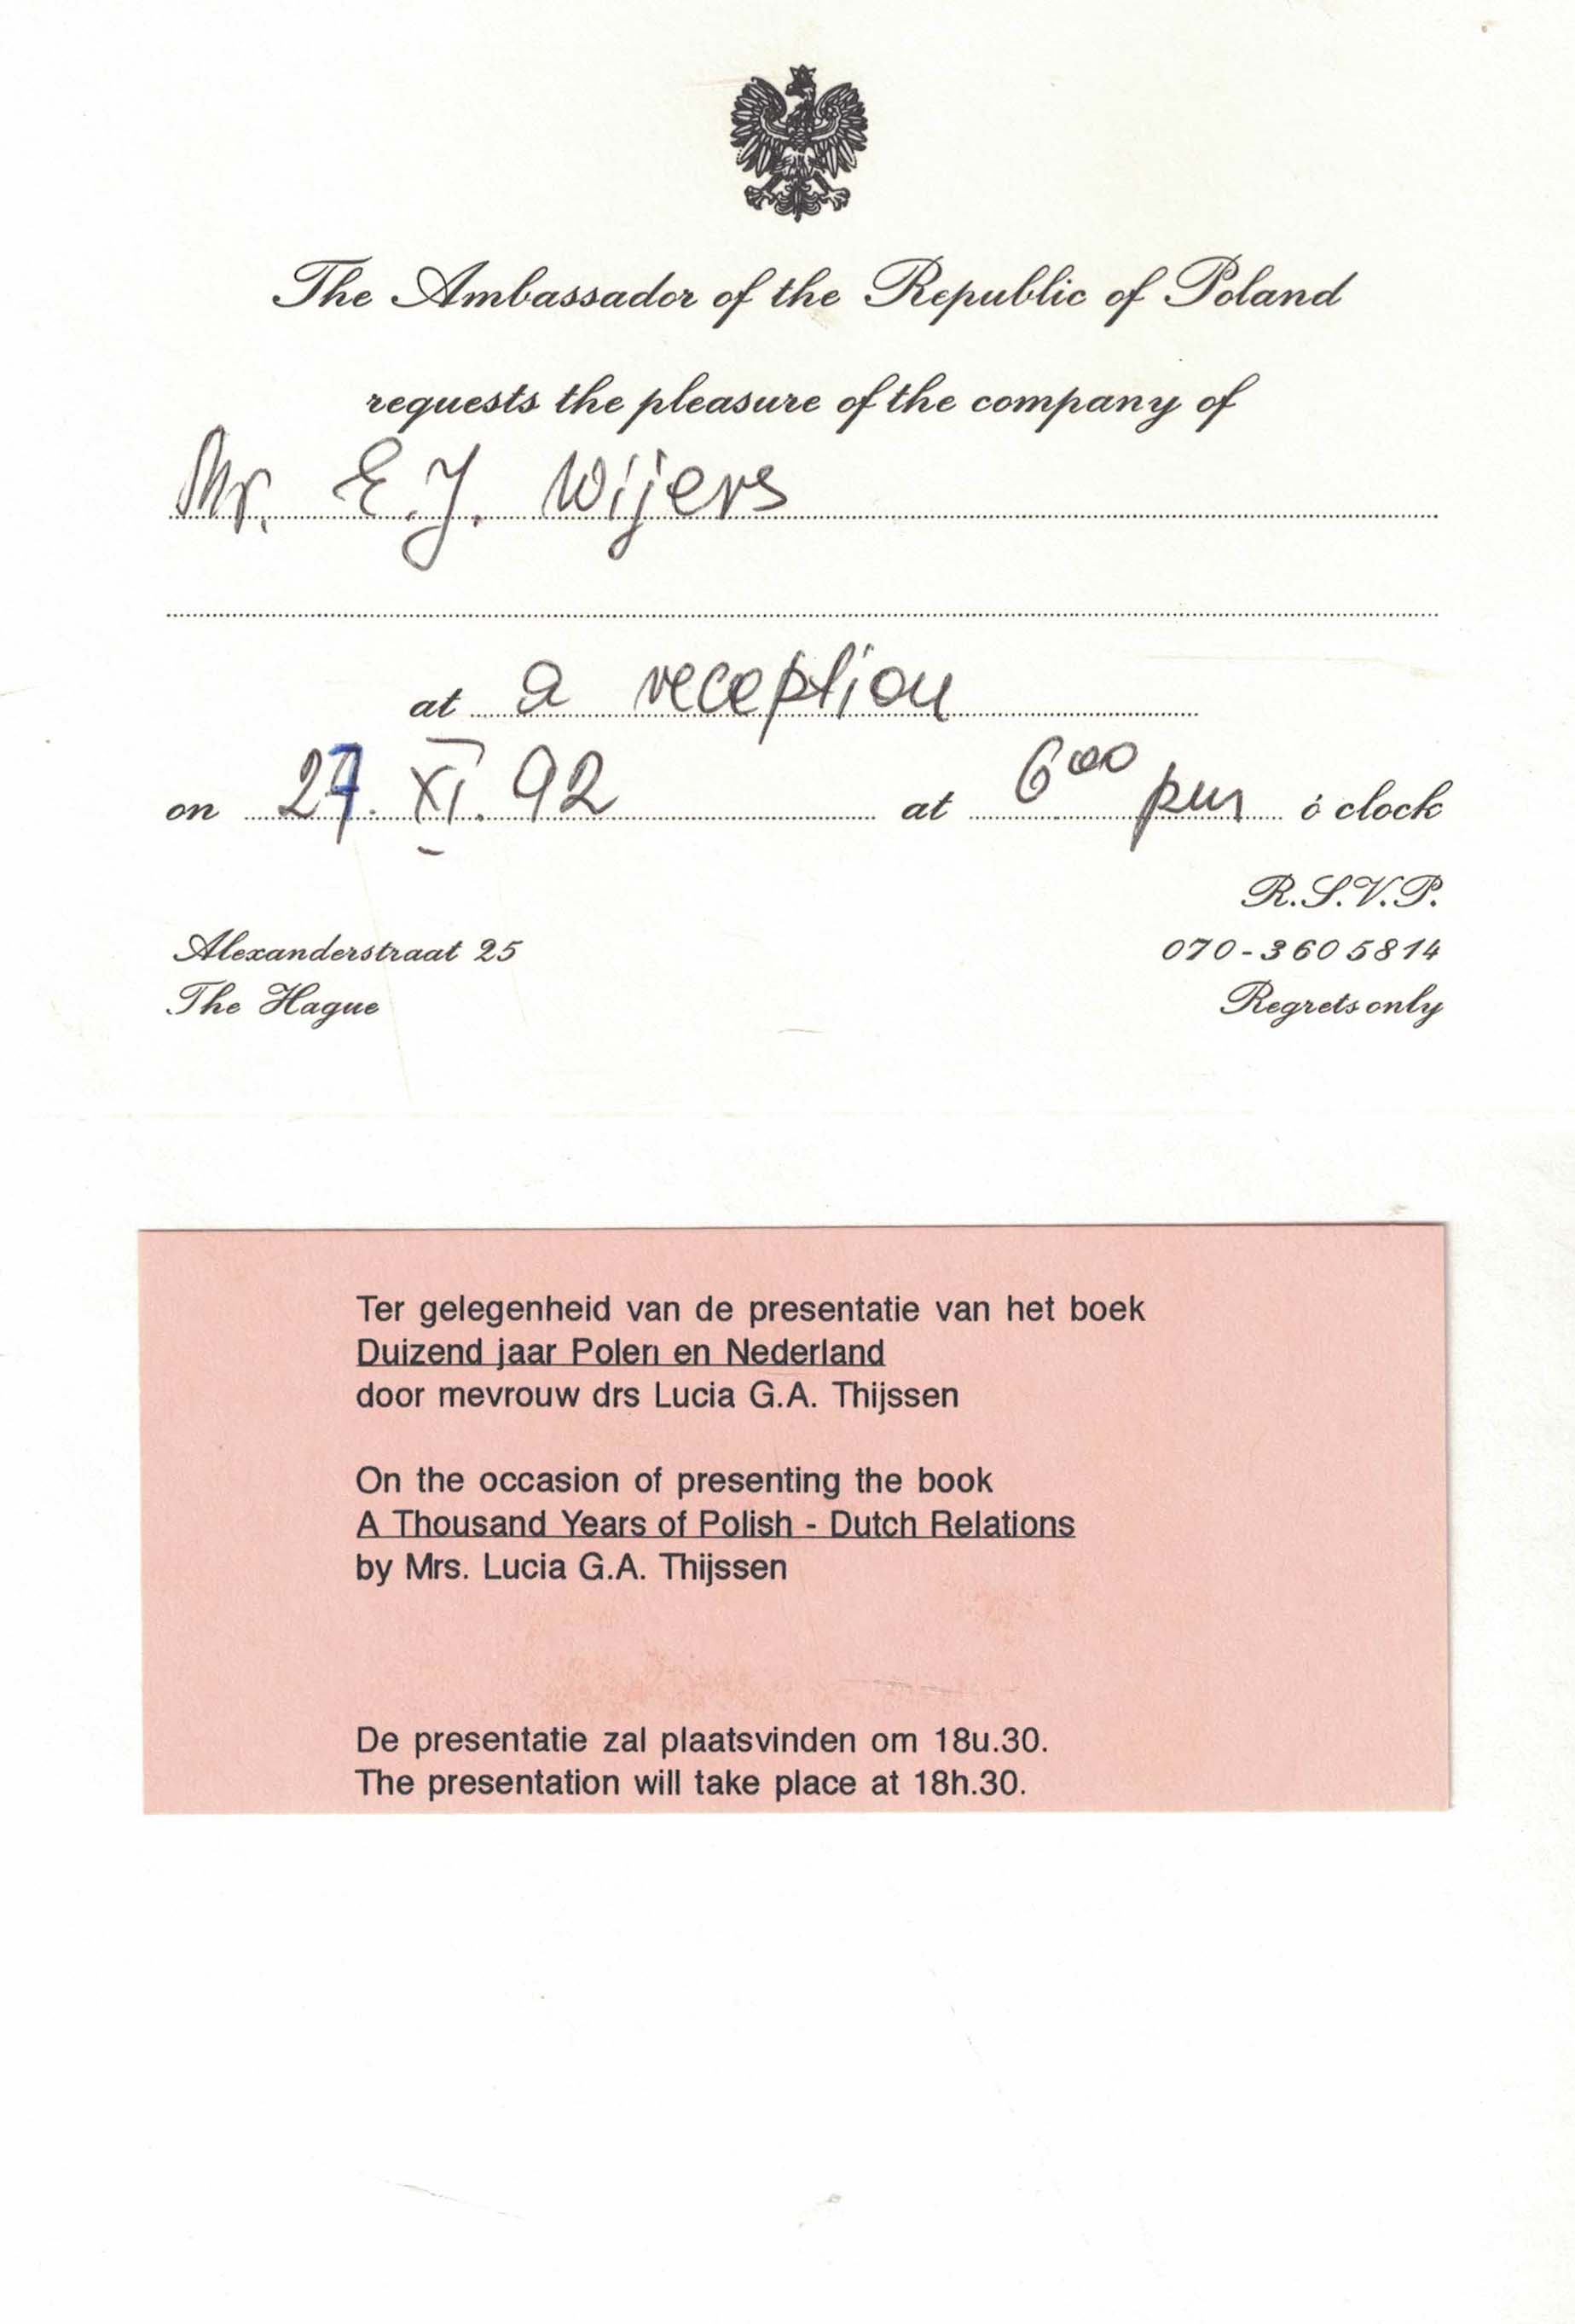 The Ambassador of the Republic of Poland
requests the pleasure of the company of
Mr. E.J. Wijers
at a reception
on 27. XI. 92 at 6⁰⁰ pm o'clock
R.S.V.P.
Alexanderstraat 25 070-3605814
The Hague Regrets only
Ter gelegenheid van de presentatie van het boek
Duizend jaar Polen en Nederland
door mevrouw drs Lucia G.A. Thijssen
On the occasion of presenting the book
A Thousand Years of Polish - Dutch Relations
by Mrs. Lucia G.A. Thijssen
De presentatie zal plaatsvinden om 18u.30.
The presentation will take place at 18h.30.